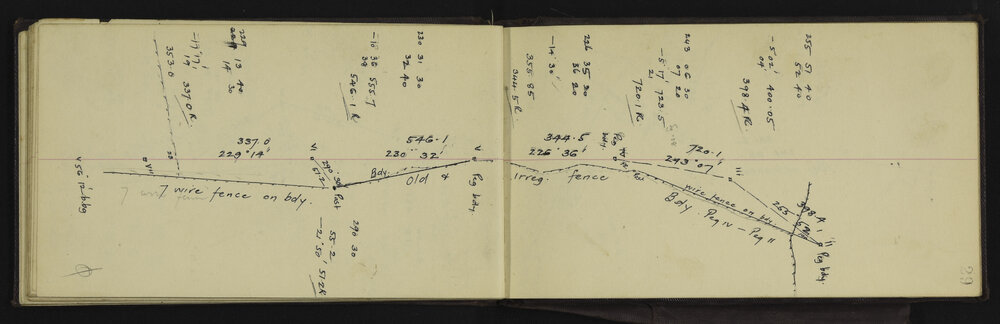 229
229 13 40
14 30
-19°17'
19 337.0 R.
353.0
230 31 30
32 40
-10 36 555.7
38
546.1 R
236 35 30
36 20
-14°30'
355.85
344.5 R.
243 06 30
07 20
-5 17 723.5
21
720.1 R
255 51 40
52 40
-5 02' 400.05
04
398.4 R.
337.0
229° 14'
546.1
230° 32'
344.5
226° 36'
720.1
243° 07'
398.4
255
VII
VI
V
III
II
20
290° 30
51.2
Post
Bdy.
Old
Peg bdy.
Irreg. fence
Peg
bdy.
7 wire fence on bdy.
wire fence on bdy
Bdy. Peg IV – Peg II
Peg bdy.
290 30
55.2
-21°50' 51.2 R
29